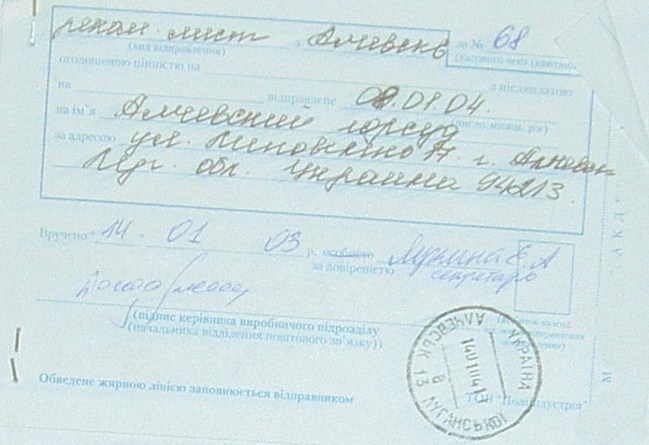 реком. лист з Алчевськ за № 68
(вид відправлення) (касового чека (квитанції)
оголошеною цінністю на з післяплатою
на відправлене 08.01.04.
(число, місяць, рік)
на ім'я Алчевский горсуд
за адресою ул. Липовенко г. Алчевск
Луг. обл. Украина 94213.
Вручено 14. 01 03 р. особисто Лукина Е. А
за довіреністю секретарь
(підпис керівника виробничого підрозділу
(начальника відділення поштового зв'язку))
Обведене жирною лінією заповнюється відправником
ТОВ "Поліндустрія"
УКРАЇНА
АЛЧЕВСЬК 13 ЛУГАНСЬКОЇ